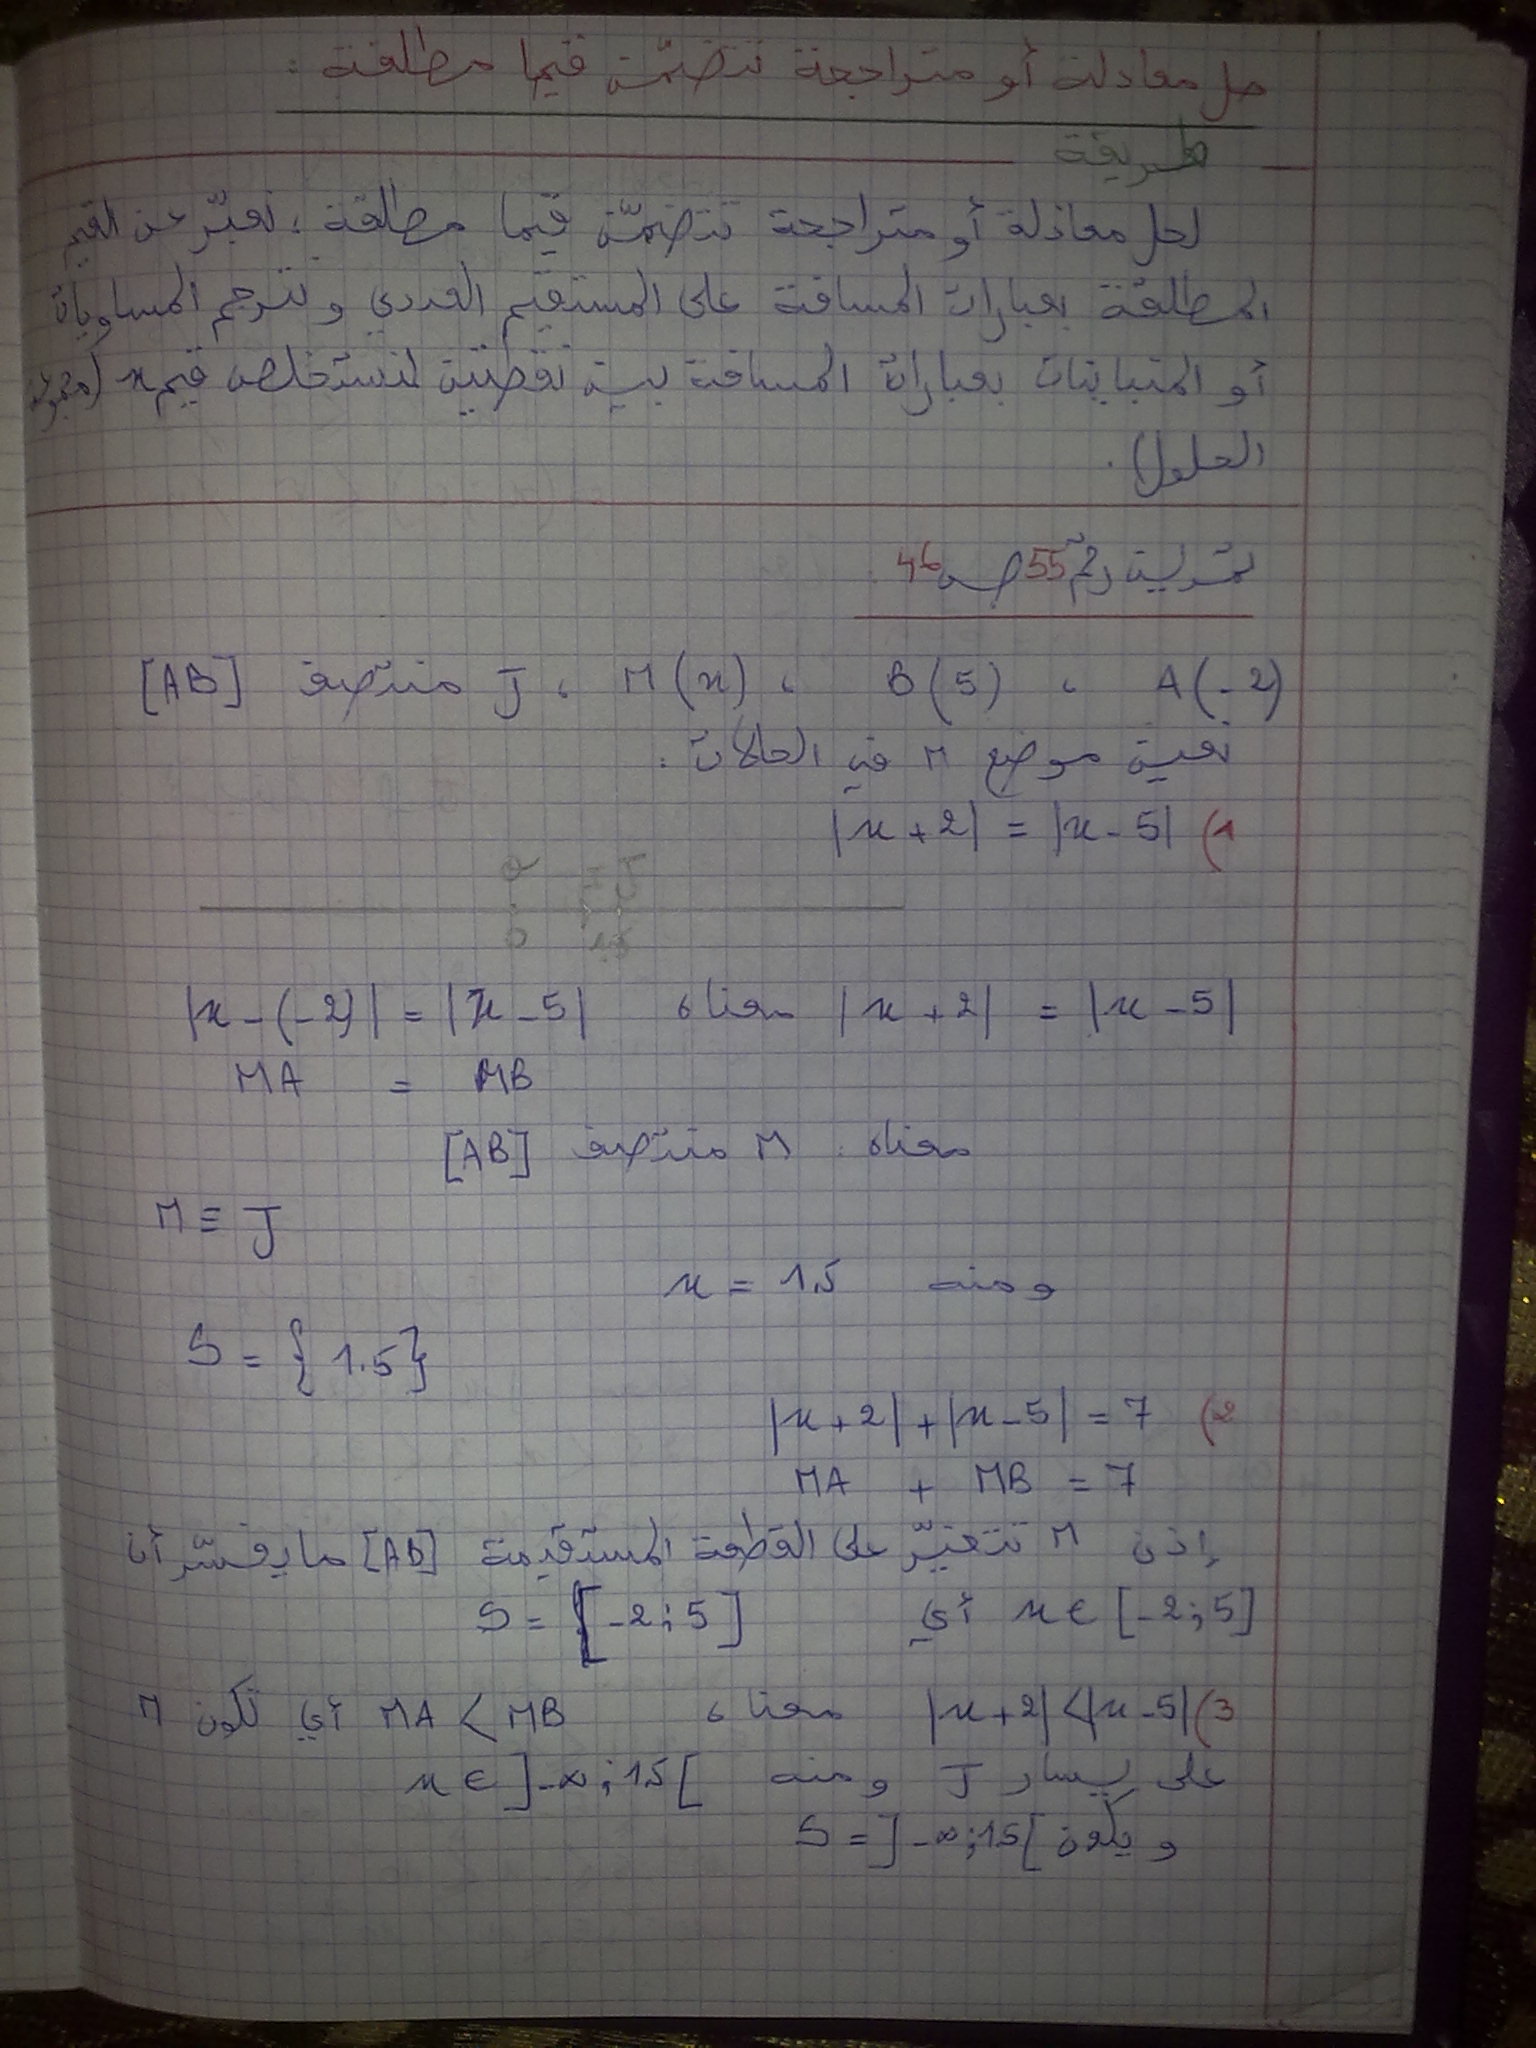 حل معادلة أو متراجحة تتضمّن قيما مطلقة :
طريقة
لحل معادلة أو متراجحة تتضمّن قيما مطلقة ، نعبّر عن القيم
المطلقة بعبارات المسافة على المستقيم العددي و نترجم المساويات
أو المتباينات بعبارات المسافة بين نقطتين لنستخلص قيم x (مجموعة
الحلول) .
تمرين رقم 55 ص 46
A(-2) ، B(5) ، M(x) ، J منتصف [AB]
نعين موضع M في الحالات :
1) |x+2| = |x-5|
O J
0 1.5
|x+2| = |x-5| معناه |x-(-2)| = |x-5|
MA = MB
معناه : M منتصف [AB]
M ≡ J
ومنه x = 1.5
S = {1.5}
2) |x+2|+|x-5| = 7
MA + MB = 7
إذن M تتغيّر على القطعة المستقيمة [AB] ما يفسّر أن
x ∈ [-2;5] أي S = [-2;5]
3) |x+2|<|x-5| معناه MA < MB أي تكون M
على يسار J ومنه x ∈ ]-∞;1.5[
و يكون S = ]-∞;1.5[